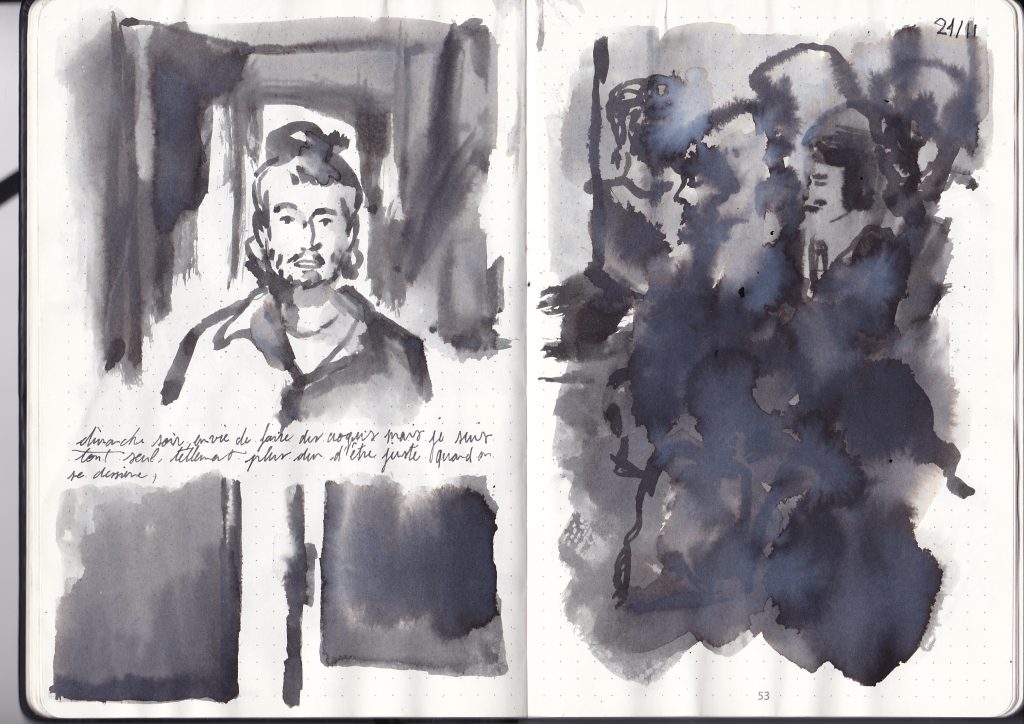 dimanche soir, envie de faire des croquis mais je suis
tout seul, tellement plus dur d'être juste quand on
se dessine,
21/11
53